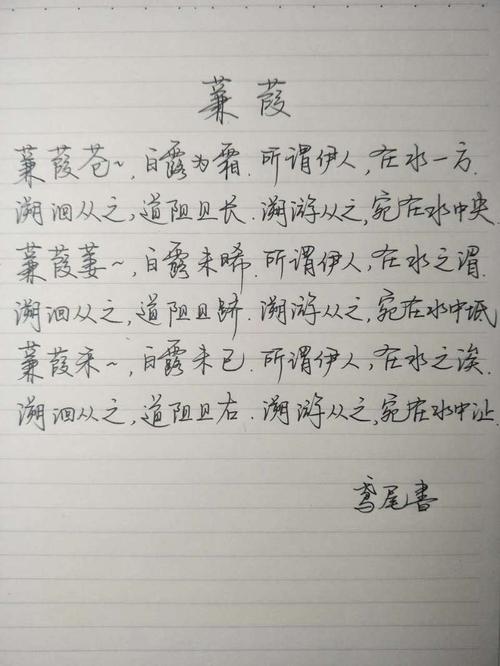 蒹葭
蒹葭苍~,白露为霜.所谓伊人,在水一方.
溯洄从之,道阻且长.溯游从之,宛在水中央.
蒹葭萋~,白露未晞.所谓伊人,在水之湄.
溯洄从之,道阻且跻.溯游从之,宛在水中坻
蒹葭采~,白露未已.所谓伊人,在水之涘.
溯洄从之,道阻且右.溯游从之,宛在水中沚.
鸢尾书